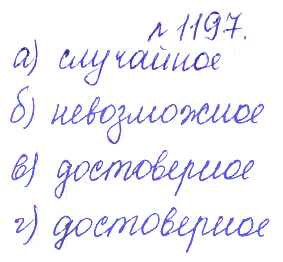 № 1197.
а) случайное
б) невозможное
в) достоверное
г) достоверное